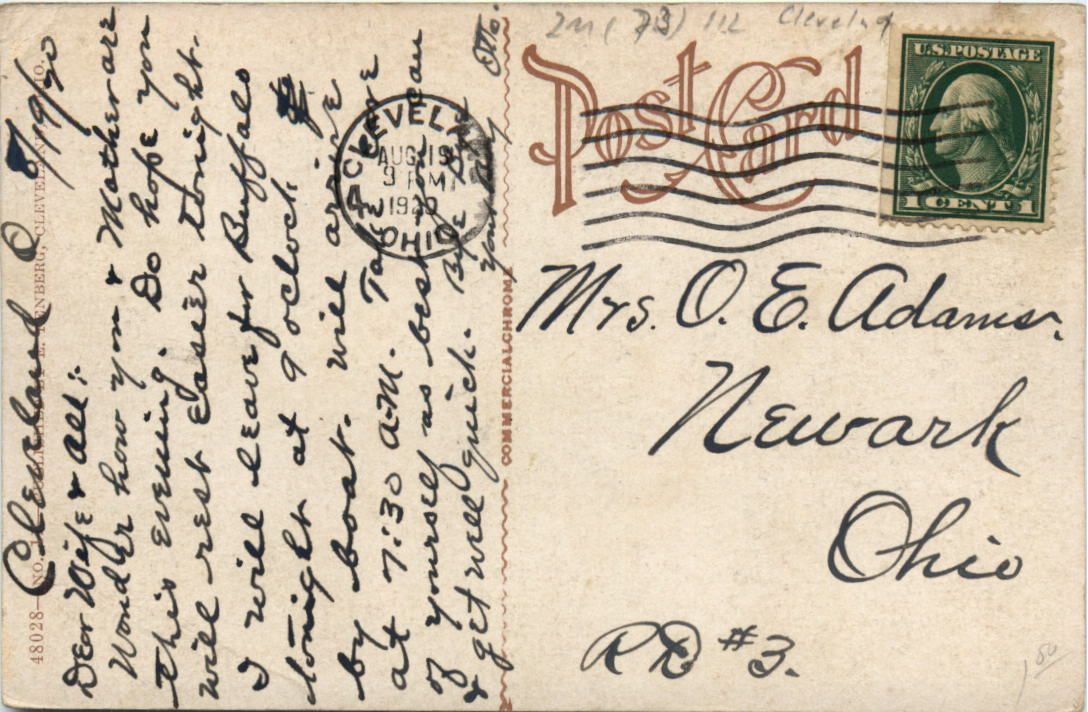 Cleveland O
8/19/20
Dear Wife & All:-
Wonder how you & Mother are
this evening. Do hope you
will rest easier tonight.
I will leave for Buffalo
tonight at 9 oclock
by boat. will arrive
at 7:30 A.M. Take care
of yourself as best you can
& get well quick. Bye Bye
Your Hubby Otto.
48028
CLEVELAND
AUG 19
9 PM
1920
OHIO
COMMERCIALCHROME
Post Card
U.S. POSTAGE
1 CENT 1
Cleveland
Mrs. O. E. Adams.
Newark
Ohio
RD #3.